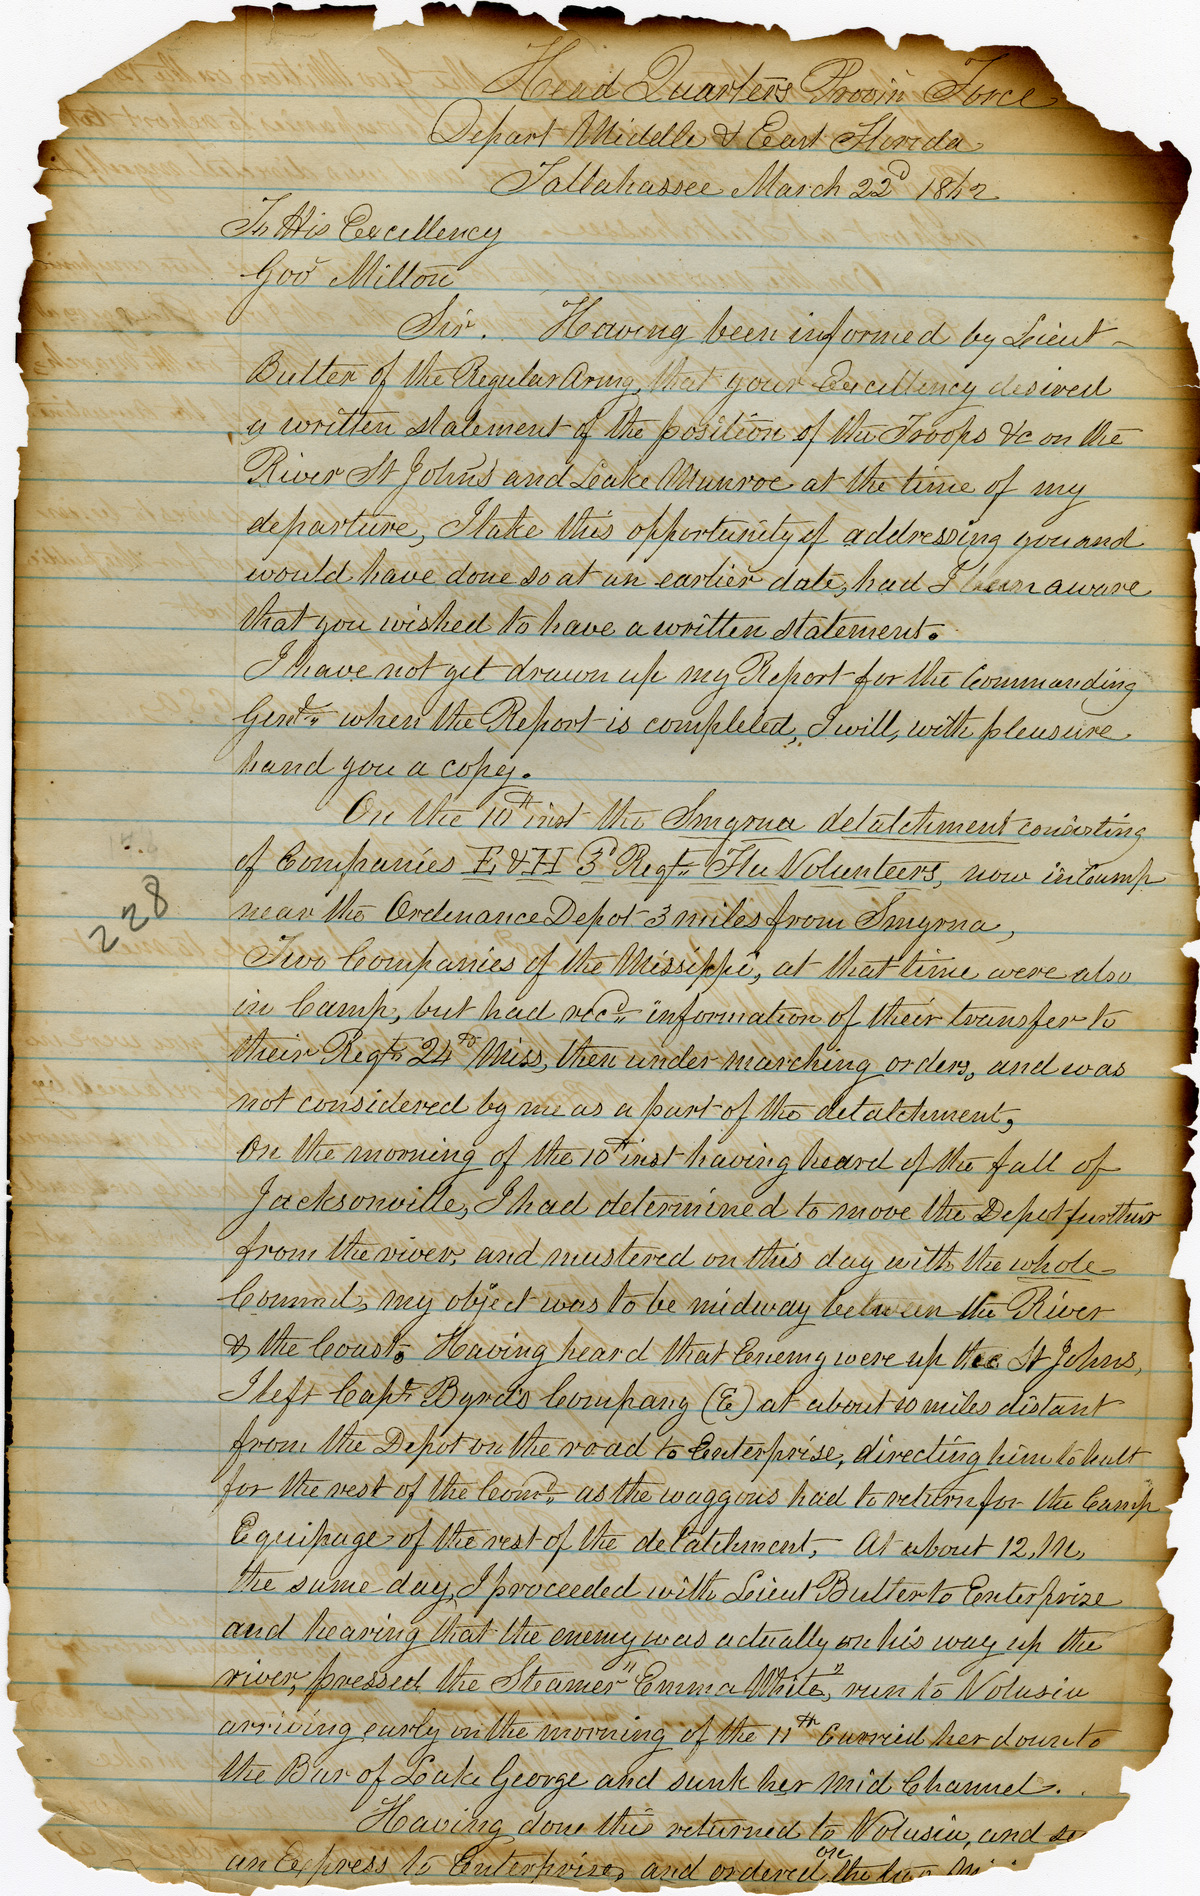 Head Quarters Provin Force
Depart Middle & East Florida
Tallahassee March 22d 1862
To His Excellency
Gov Milton
Sir. Having been informed by Lieut
Butler of the Regular Army, that your Excellency desired
a written statement of the position of the Troops &c on the
River St Johns and Lake Munroe at the time of my
departure, I take this opportunity of addressing you and
would have done so at an earlier date, had I been aware
that you wished to have a written statement.
I have not yet drawn up my Report for the Commanding
Genl. when the Report is completed, I will, with pleasure
hand you a copy.
On the 10th inst the Smyrna detatchment consisting
of Companies E & H 3d Regt. Fla Volunteers, now in Camp
near the Ordinance Depot 3 miles from Smyrna,
Two Companies of the Missippi, at that time were also
in Camp, but had recd. information of their transfer to
their Regt 24th Miss, then under marching orders, and was
not considered by me as a part of the detatchment,
On the morning of the 10th inst having heard of the fall of
Jacksonville, I had determined to move the Depot further
from the river, and mustered on this day with the whole
Commd, my object was to be midway between the River
& the Coast. Having heard that Enemy were up the St Johns,
I left Capt. Byrd's Company (E) at about 10 miles distant
from the Depot on the road to Enterprise, directing him to halt
for the rest of the Comd. as the waggons had to return for the Camp
Equipage of the rest of the detatchment, At about 12, M,
the same day, I proceeded with Lieut Butler to Enterprize
and hearing that the enemy was actually on his way up the
river, pressed the Steamer "Emma White", run to Volusia
arriving early on the morning of the 11th Carried her down to
the Bar of Lake George and sunk her mid Channel.
Having done this returned to Volusia, and
an Express to Enterprise, and ordered on the two
228